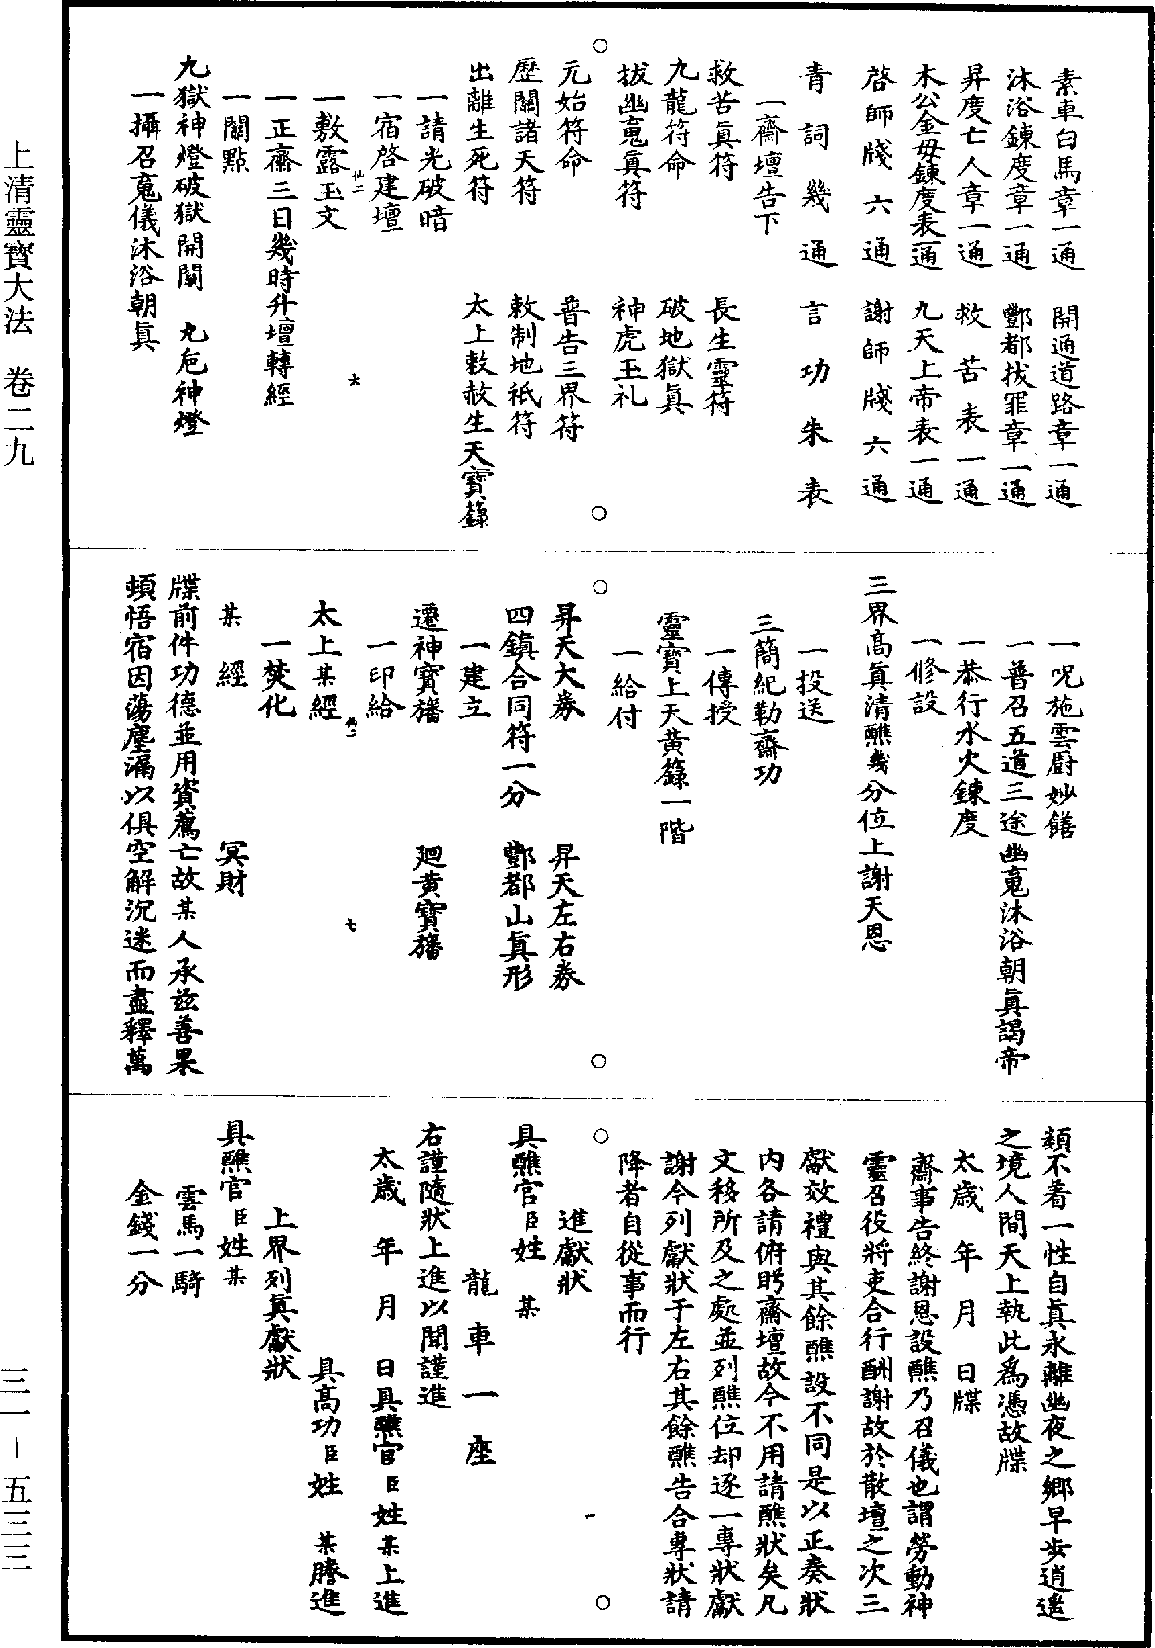 素車白馬章一通　開通道路章一通
沐浴鍊度章一通　酆都拔罪章一通
昇度亡人章一通　救苦表一通
木公金母鍊度表一通　九天上帝表一通
啓師牋六通　謝師牋六通
青詞幾通　言功朱表
一齋壇告下
救苦眞符　長生靈符
九龍符命　破地獄眞
拔幽䰟眞符　神虎玉札
元始符命　普告三界符
歷關諸天符　敕制地祇符
出離生死符　太上敕赦生天寶籙
一請光破暗
一宿啓建壇
一敷露玉文
一正齋三日幾時升壇轉經
一關點
九獄神燈破獄開關　九巵神燈
一攝召䰟儀沐浴朝眞
六
一呪施雲厨妙饍
一普召五道三途幽䰟沐浴朝眞謁帝
一恭行水火鍊度
一修設
三界高眞清醮幾分位上謝天恩
一投送
三簡紀勒齋功
一傳授
靈寶上天黃籙一階
一給付
昇天大券　昇天左右券
四鎮合同符一分　酆都山眞形
一建立
遷神寶旛　廻黃寶旛
一印給
太上某經
一焚化
某經　冥財
牒前件功德並用資薦亡故某人承兹善果
頓悟宿因蕩塵漏以俱空解沉迷而盡釋萬
七
類不着一性自眞永離幽夜之鄉早步逍遙
之境人間天上執此爲憑故牒
太歲　年　月　日牒
齋事告終謝恩設醮乃召儀也謂勞動神
靈召役將吏合行酬謝故於散壇之次三
獻效禮與其餘醮設不同是以正奏狀
内各請俯眄齋壇故今不用請醮狀矣凡
文移所及之處並列醮位却逐一專狀獻
謝今列獻狀于左右其餘醮告合專狀請
降者自從事而行
進獻狀
具醮官臣姓　某
龍車一座
右謹隨狀上進以聞謹進
太歲　年　月　日具醮官臣姓某上進
具高功臣姓　某謄進
上界列眞獻狀
具醮官臣姓某
雲馬一騎
金錢一分
上清靈寶大法　卷二九
三一－五三三